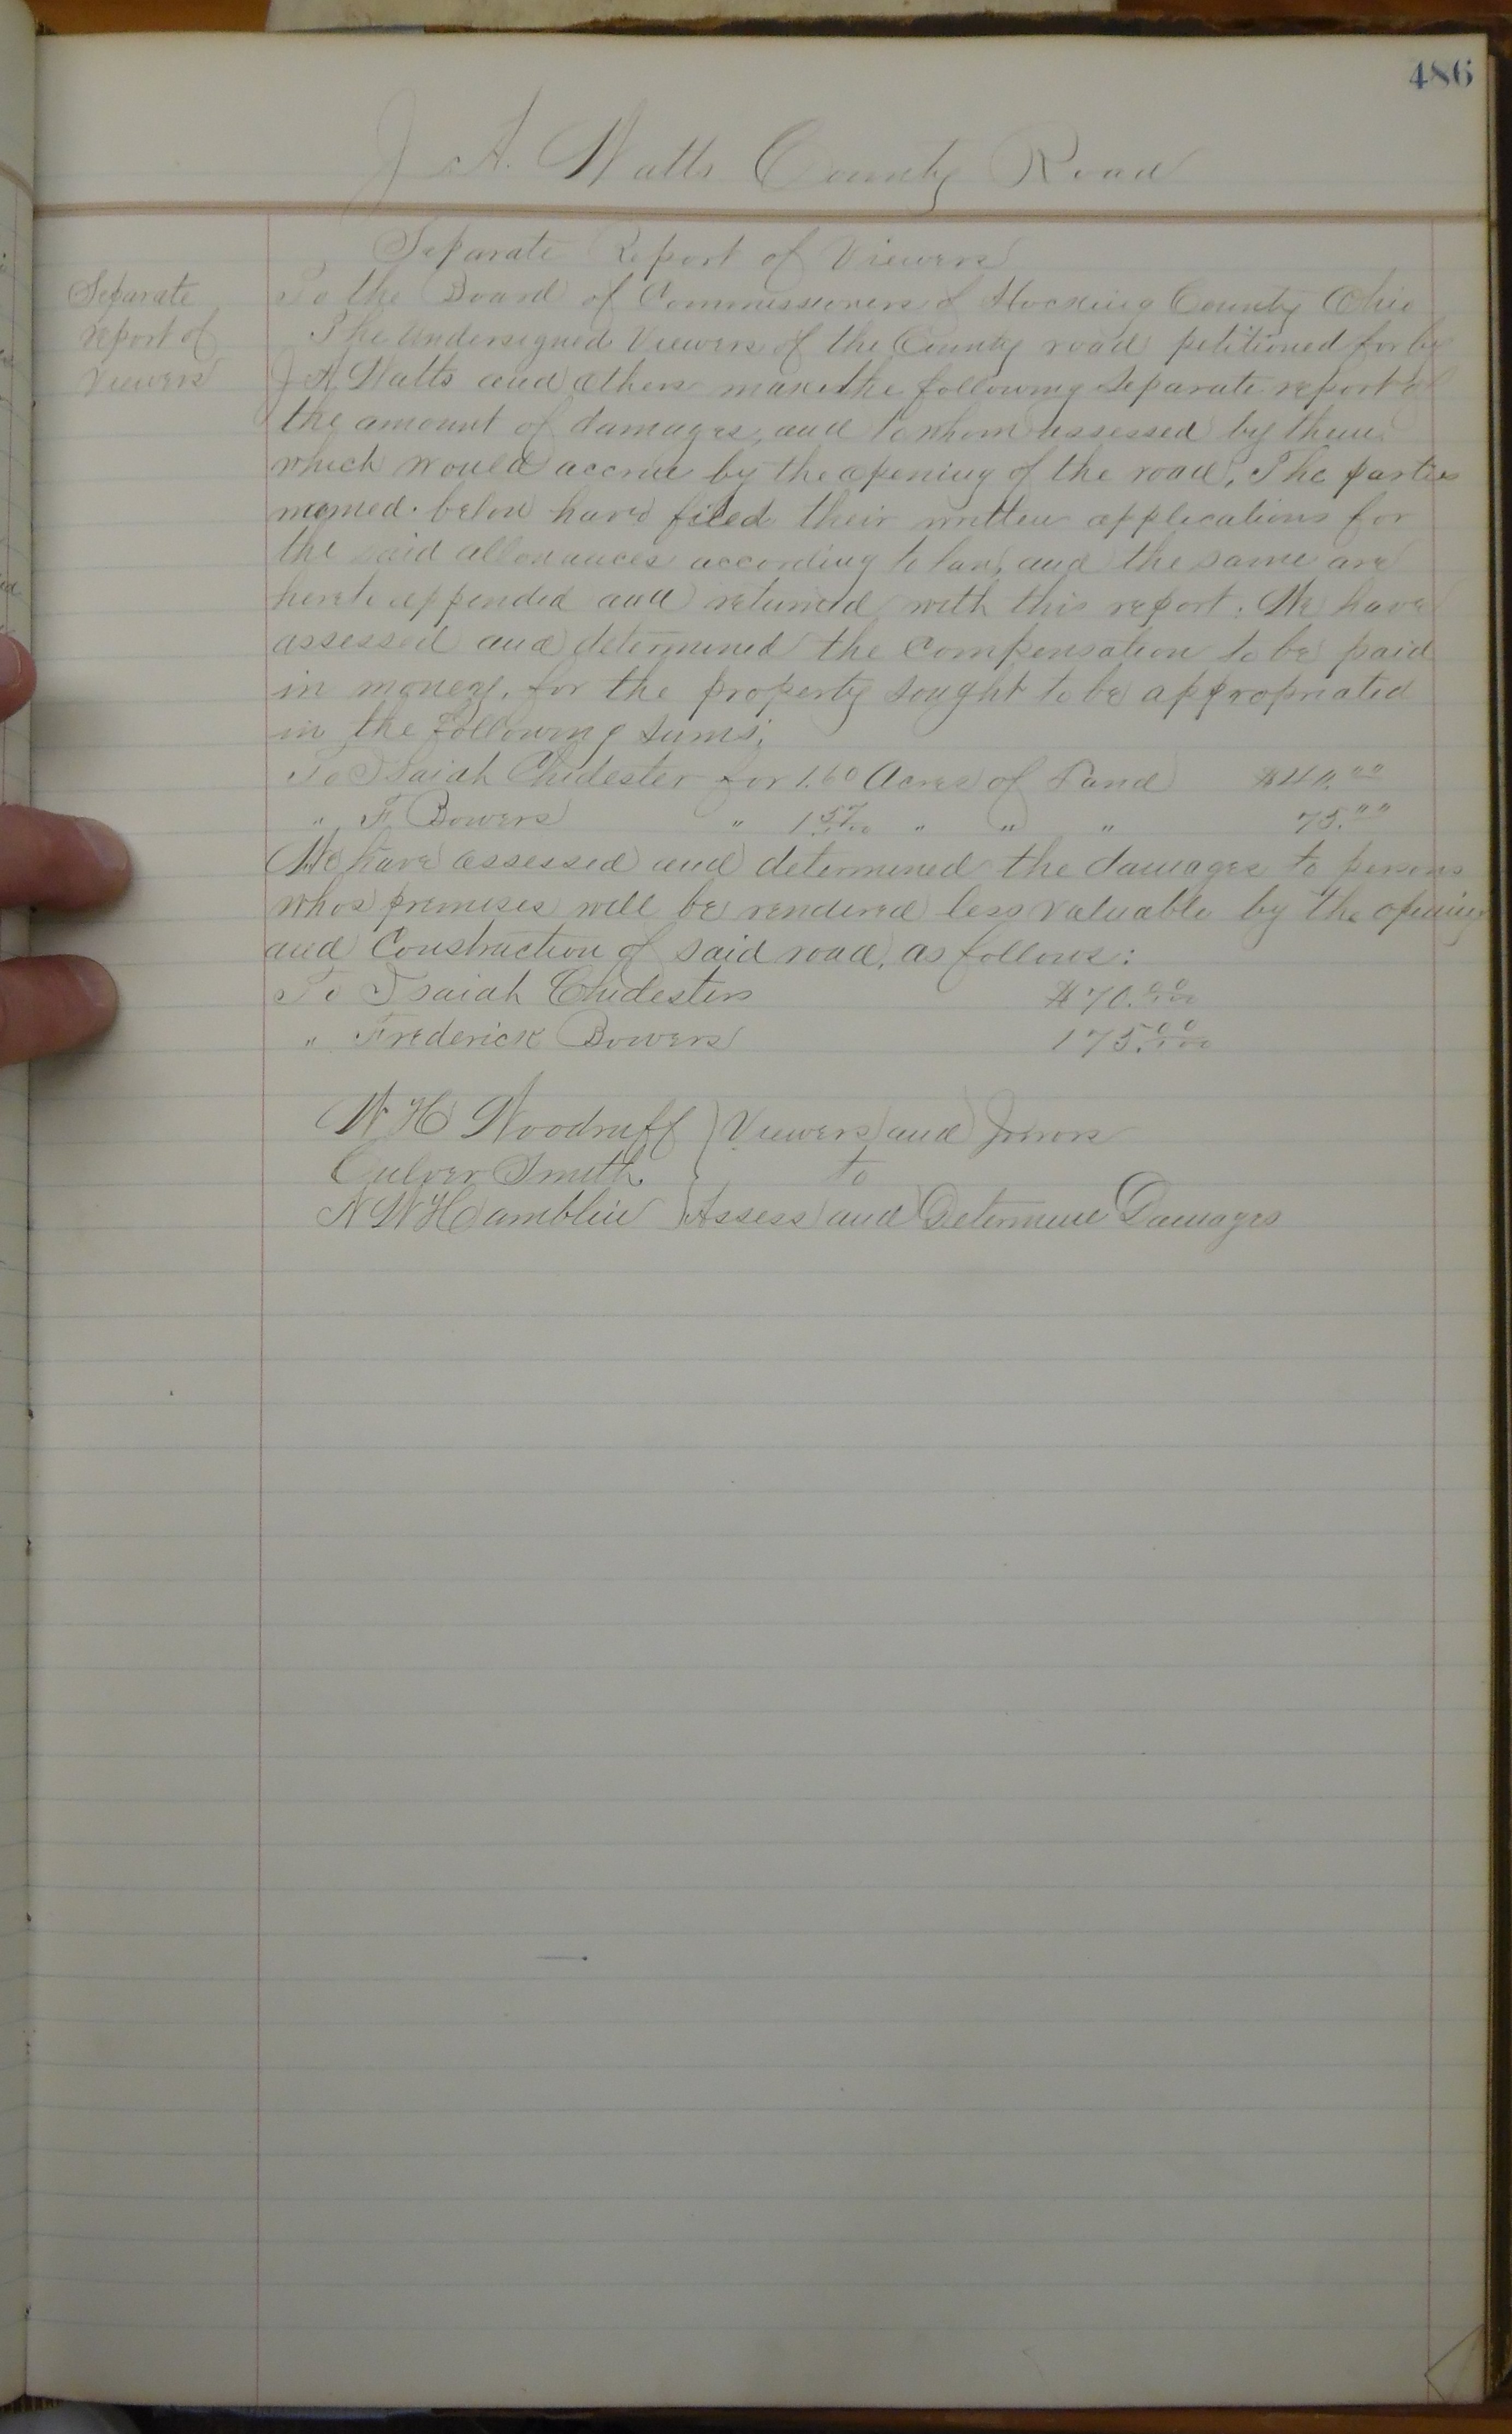 486
J A. Watts County Road
Separate Report of Viewers
Separate
report of
Viewers
To the Board of Commissioners of Hocking County Ohio
The Undersigned Viewers of the County road petitioned for by
J A Watts and others make the following separate report of
the amount of damages, and to whom assessed by them,
which would accrue by the opening of the road, The parties
named below have filed their written applications for
the said allowances according to law, and the same are
hereto appended and returned with this report. We have
assessed and determined the Compensation to be paid
in money, for the property sought to be appropriated
in the following sums;
To Isaiah Chidester for 1.60 Acres of Land $40.00
" F Bowers " 1 57/100 " " " 75.00
We have assessed and determined the damages to persons
whos premises will be rendered less valuable by the opening
and Construction of said road, as follows:
To Isaiah Chidester $70.00/100
" Frederick Bowers 175.00/100
W H Woodruff } Viewers and Jurors
Culver Smith } to
N W Hamblin } Assess and Determine Damages